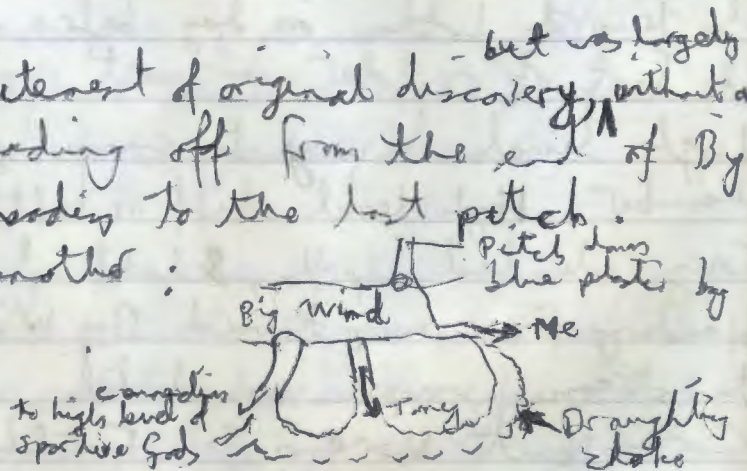 but was largely
of original discovery, without a
off from the end of By
to the last pitch.
another :
Pitch down
blue plastic bag
Big Wind
Me
connection
to high level of
Sportive Gods
Tony
Draughting
choke